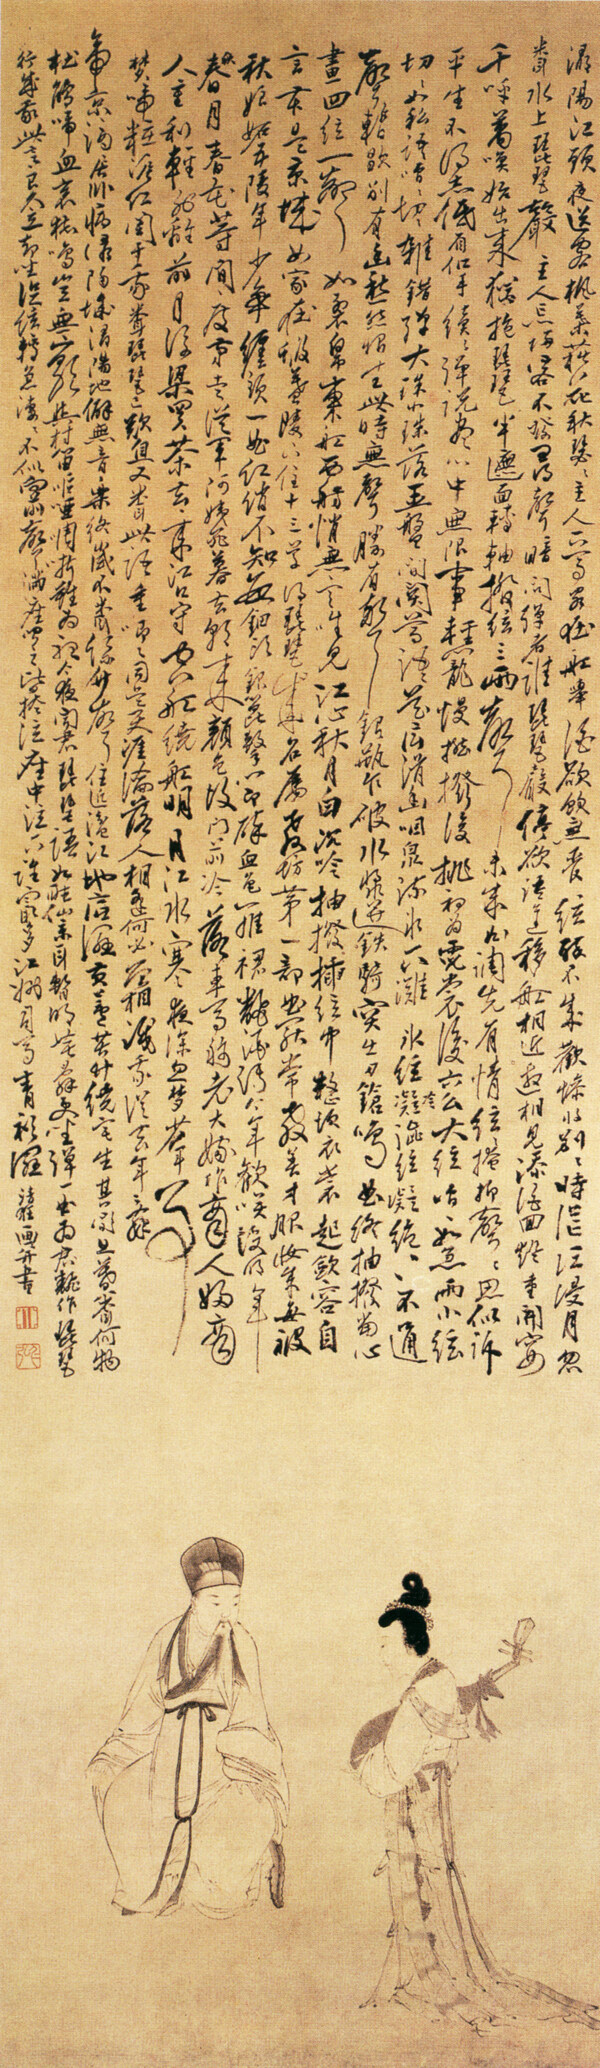 潯陽江頭夜送客楓葉荻花秋瑟瑟主人下馬客在舡舉酒欲飲無管絃醉不成歡慘將別別時茫茫江浸月忽
聞水上琵琶聲主人忘歸客不發尋聲暗問彈者誰琵琶聲停欲語遲移舡相近邀相見添酒回燈重開宴
千呼萬喚始出來猶抱琵琶半遮面轉軸撥絃三兩聲未成曲調先有情絃絃掩抑聲聲思似訴
平生不得志低眉信手續續彈說盡心中無限事輕攏慢撚撥復挑初為霓裳後六幺大絃嘈嘈如急雨小絃
切切如私語嘈嘈切切雜錯彈大珠小珠落玉盤間關鶯語花底滑幽咽泉流水下灘氷絃冷澁絃凝絕凝絕不通
聲暫歇別有幽愁暗恨生此時無聲勝有聲銀瓶乍破水漿迸鐵騎突出刀鎗鳴曲終抽撥當心
畫四絃一聲如裂帛東舡西舫悄無言唯見江心秋月白沉吟抽撥插絃中整頓衣裳起斂容自
言本是京城女家在蝦蟇陵下住十三學得琵琶成名屬教坊第一部曲罷常教善才服妝成每被
秋娘妬五陵年少爭纏頭一曲紅綃不知數鈿頭銀篦擊節碎血色羅裙翻酒污今年歡笑復明年
春月春花等閒度弟走從軍阿姨死暮去朝來顏色故門前冷落車馬稀老大嫁作商人婦商
人重利輕別離前月浮梁買茶去去來江口守空舡繞舡明月江水寒夜深忽夢少年事
夢啼粧淚紅闌干我聞琵琶已歎息又聞此語重唧唧同是天涯淪落人相逢何必曾相識我從去年辭
帝京謫居臥病潯陽城潯陽地僻無音樂終歲不聞絲竹聲住近湓江地底濕黃蘆苦竹繞宅生其間旦暮聞何物
杜鵑啼血哀猿鳴豈無山歌與村笛嘔啞嘲哳難為聽今夜聞君琵琶語如聽仙樂耳暫明莫辭更坐彈一曲為君翻作琵琶
行感我此言良久立却坐促絃絃轉急淒淒不似向前聲滿座聞之皆掩泣座中泣下誰最多江州司馬青衫濕 清狂画并書